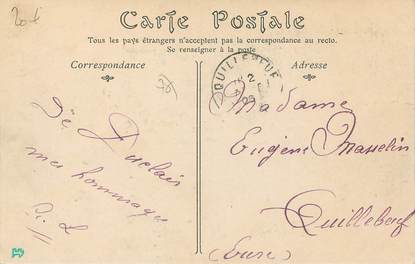 20 €
Carte Postale
Tous les pays étrangers n'acceptent pas la correspondance au recto.
Se renseigner à la poste
Correspondance
Adresse
QUILLEBEUF
De Duclair
mes hommages
Madame
Eugène Masselin
Quillebeuf
(Eure)